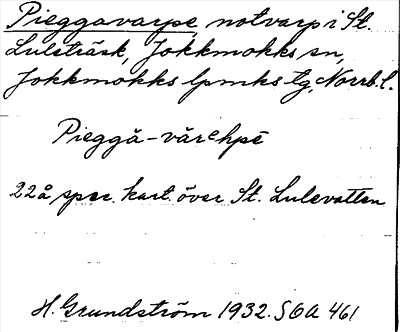 Pieggavarpe, notvarp i St.
Luleträsk, Jokkmokks sn,
Jokkmokks lpmks tg, Norrb. l.
Pieggă-vărehpē
22å, spec. kart. över St. Lulevatten
H. Grundström 1932. SOA 461